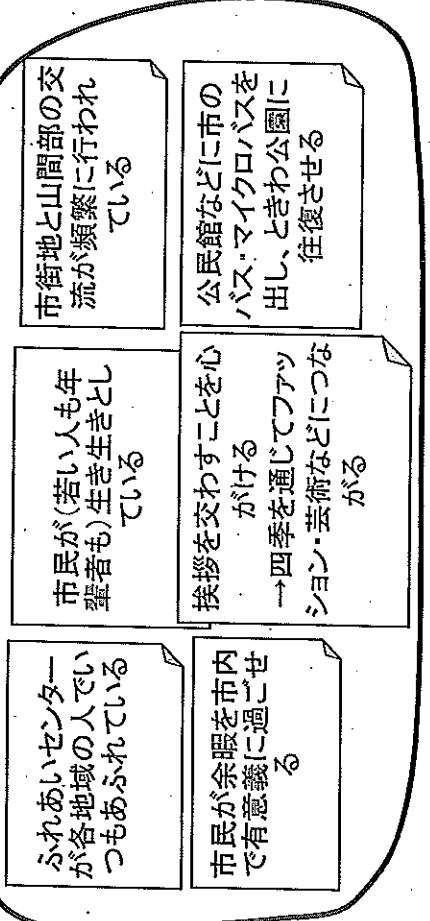 ふれあいセンター
が各地域の人でい
つもあふれている
市民が(若い人も年
輩者も)生き生きとし
ている
市街地と山間部の交
流が頻繁に行われ
ている
市民が余暇を市内
で有意義に過ごせ
る
挨拶を交わすことを心
がける
→四季を通じてファッ
ション・芸術などにつな
がる
公民館などに市の
バス・マイクロバスを
出し、ときわ公園に
往復させる